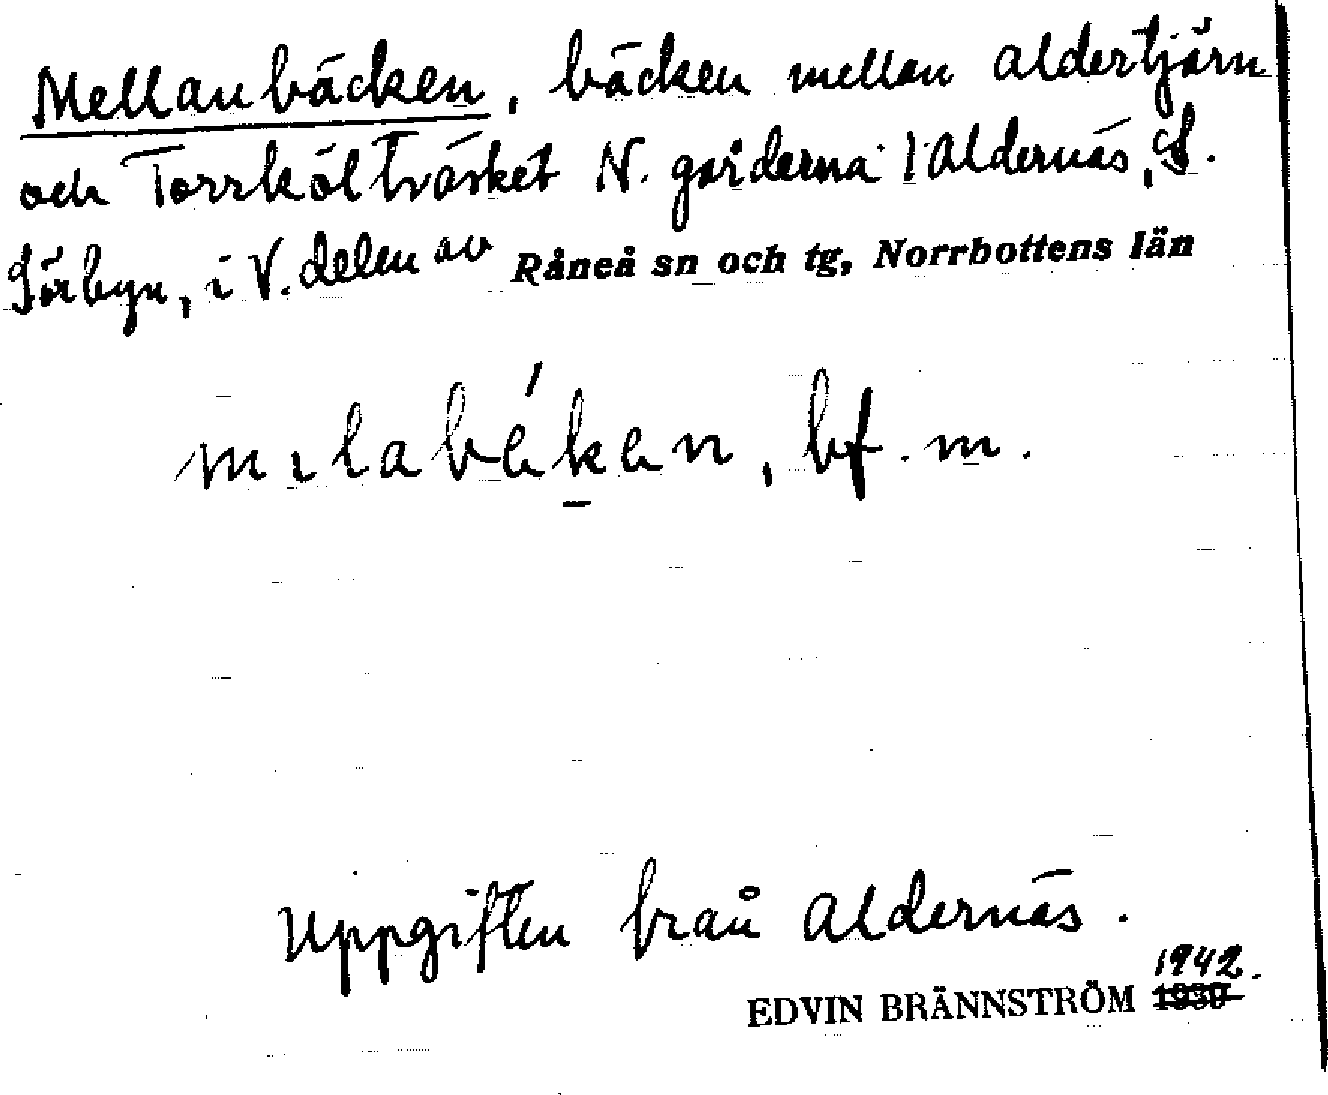 Mellanbäcken, bäcken mellan Aldertjärn
och Torrkölträsket N. gårderna i Aldernäs, S.
Sörbyn, i V. delen av Råneå sn och tg, Norrbottens län
bf. m.
Uppgiften från Aldernäs.
1942.
EDVIN BRÄNNSTRÖM 1939